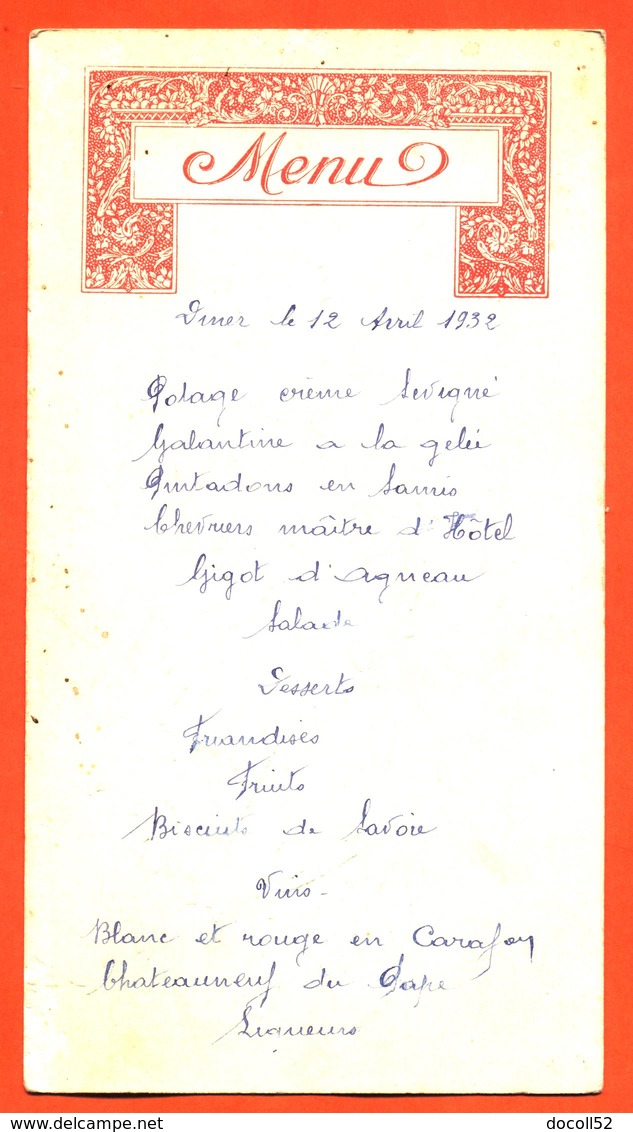 Menu
Diner le 12 Avril 1932
Potage crème Sevigné
Galantine a la gelée
Pintadons en Samis
Chevriers maître d'Hôtel
Gigot d'agneau
Salade
Desserts
Friandises
Fruits
Biscuits de Savoie
Vins -
Blanc et rouge en Carafon
Chateauneuf du Pape
Liqueurs
www.delcampe.net
docoll52